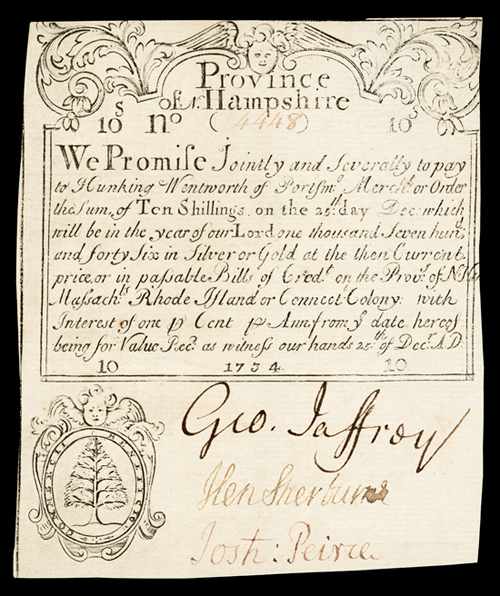 Province
of N. Hampshire
10ˢ Nº (4448) 10ˢ
We Promise Jointly and Severally to pay
to Hunking Wentworth of Portsmº Merchᵗ or Order
the Sum, of Ten Shillings, on the 25ᵗʰ day Dec. which
will be in the year of our Lord one thousand Seven hunᵈ
and forty Six in Silver or Gold at the then Current
price, or in passable Bills of Credᵗ on the Provᵉ of N Ham
Massachᵗˢ Rhode Island or Connect Colony: with
Interest of one p Cent p Ann from yᵉ date hereof
being for Value Recᵈ as witness our hands 25ᵗʰ of Decʳ A.D.
10 1734 10
Geo. Jaffrey
Hen Sherburne
Josh: Peirce